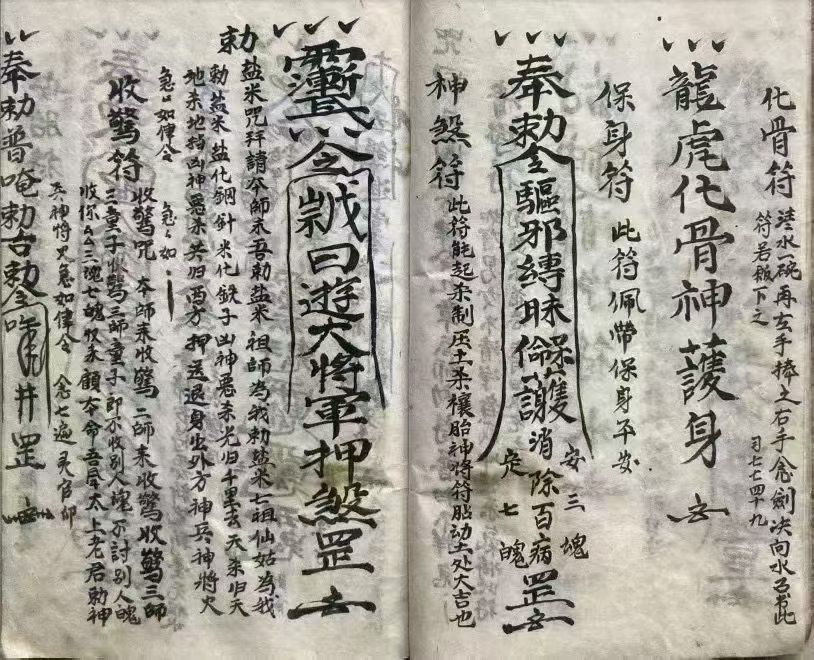 化骨符 洼水一碗再左手捧之右手念劍决向水名书此
符若飯下之
習七七四十九
龍虎化骨神護身
保身符 此符佩帶保身平安
奉勅令驅邪縛昧保護消除百病罡
安三魂
定七魄
神煞符 此符能起杀制压土杀禳胎神將符貼动土处大吉也
令誠曰遊大將軍押煞罡
勅鹽米咒拜請夲師来吾勅盐米祖師為我勅盐米七祖仙姑為我
勅盐米盐化鋼針米化鉄子凶神惡杀光归千里去天杀归天
地杀地挡凶神惡杀共归西方押送退身出外方神兵神將火
急如律令 急〻如
收驚符 收驚咒 夲師来收驚二師来收驚收驚三師
三童子收驚三師童子即不收别人魂不討别人魄
收你厶厶三魂七魄收来顧夲命吾奉太上老君勅神
兵神將火急如律令 念七遍灵官印
奉勅普唵勅古勅令 井罡